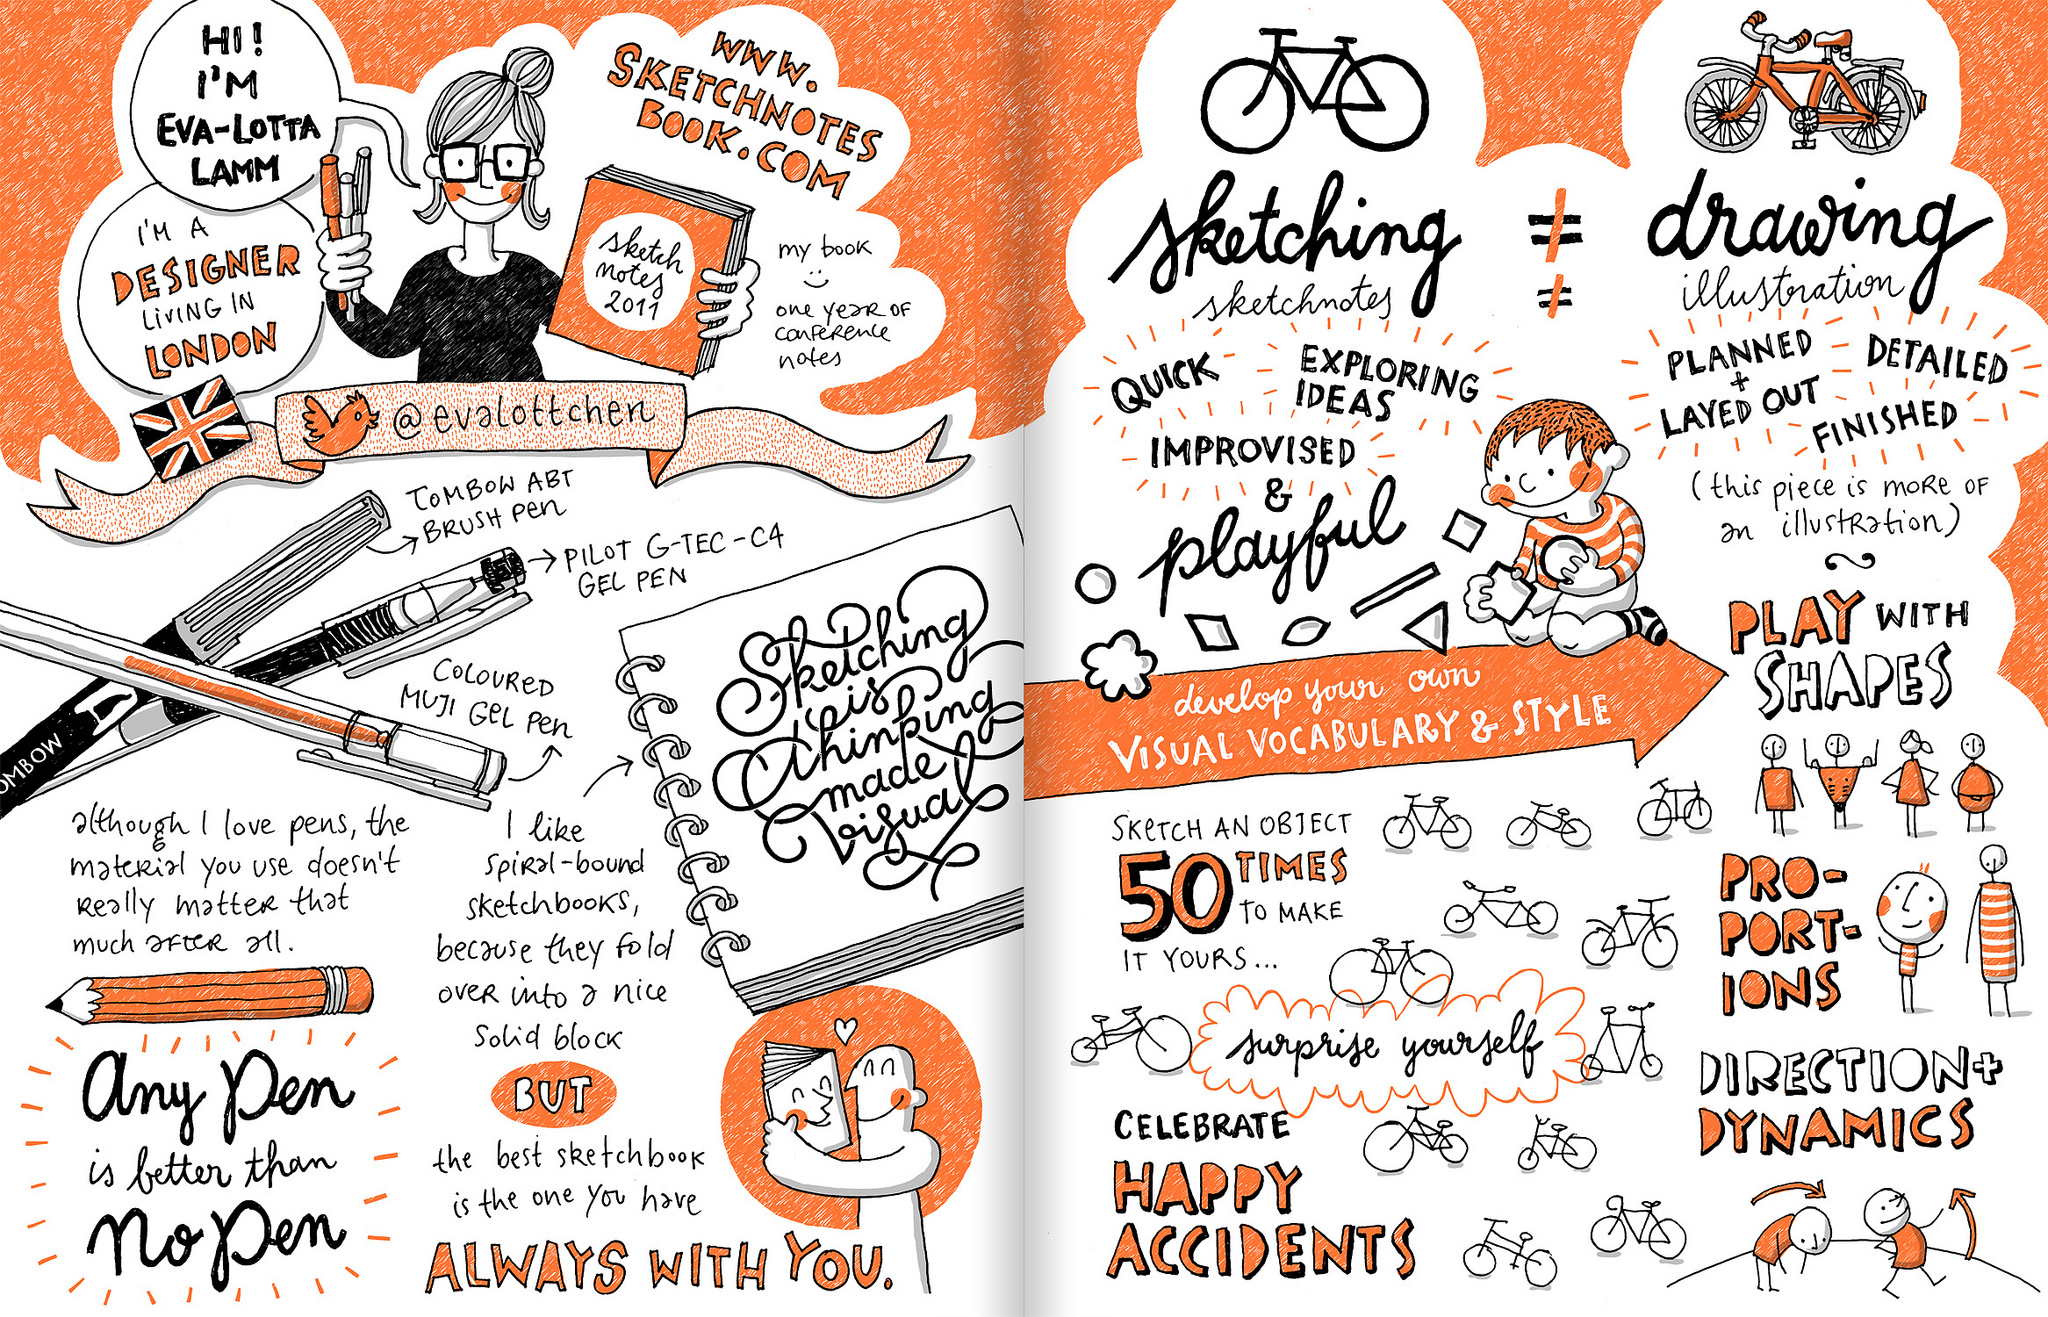 HI!
I'M
EVA-LOTTA
LAMM
I'M A
DESIGNER
LIVING IN
LONDON
WWW.
SKETCHNOTES
BOOK.COM
sketch
notes
2011
my book
one year of
conference
notes
@evalottchen
TOMBOW ABT
BRUSH PEN
PILOT G-TEC-C4
GEL PEN
COLOURED
MUJI GEL PEN
OMBOW
although I love pens, the
material you use doesn't
really matter that
much after all.
Any Pen
is better than
No Pen
I like
spiral-bound
sketchbooks,
because they fold
over into a nice
solid block
Sketching
is
thinking
made
visual
BUT
the best sketchbook
is the one you have
ALWAYS WITH YOU.
sketching ≠ drawing
sketchnotes ≠ illustration
QUICK
EXPLORING
IDEAS
IMPROVISED
&
playful
PLANNED
+
LAYED OUT
DETAILED
FINISHED
(this piece is more of
an illustration)
develop your own
VISUAL VOCABULARY & STYLE
PLAY WITH
SHAPES
SKETCH AN OBJECT
50 TIMES
TO MAKE
IT YOURS...
surprise yourself
CELEBRATE
HAPPY
ACCIDENTS
PRO-
PORT-
IONS
DIRECTION+
DYNAMICS